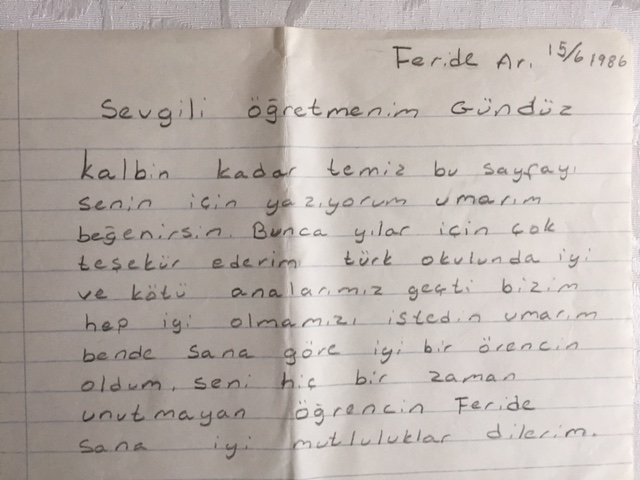 Feride Ar. 15/6 1986
Sevgili öğretmenim Gündüz
kalbin kadar temiz bu sayfayı
senin için yazıyorum umarım
beğenirsin. Bunca yılar için çok
teşekür ederim türk okulunda iyi
ve kötü analarımız geçti bizim
hep iyi olmamızı istedin umarım
bende sana göre iyi bir örencin
oldum, seni hiç bir zaman
unutmayan öğrencin Feride
sana iyi mutluluklar dilerim.